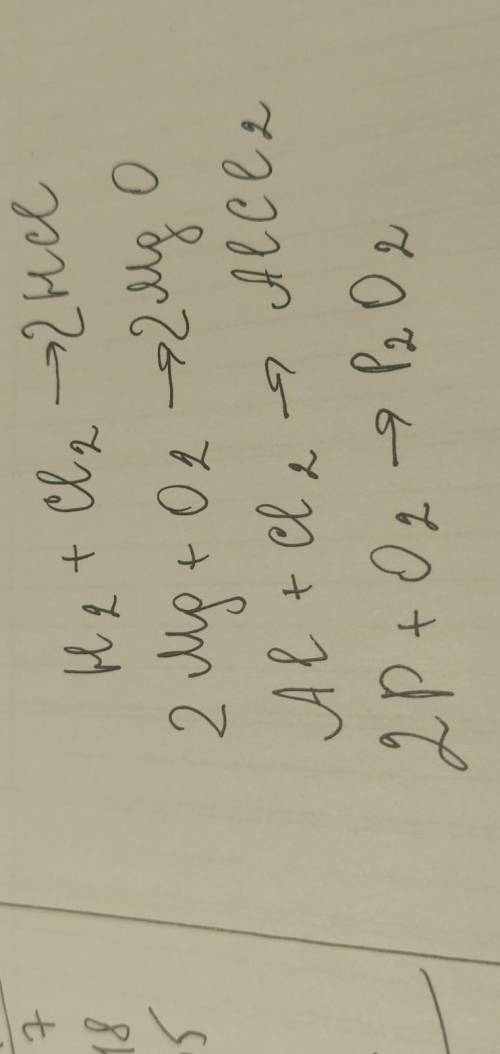 H₂ + Cl₂ → 2HCl
2Mg + O₂ → 2MgO
Al + Cl₂ → AlCl₂
2P + O₂ → P₂O₂
7
18
5